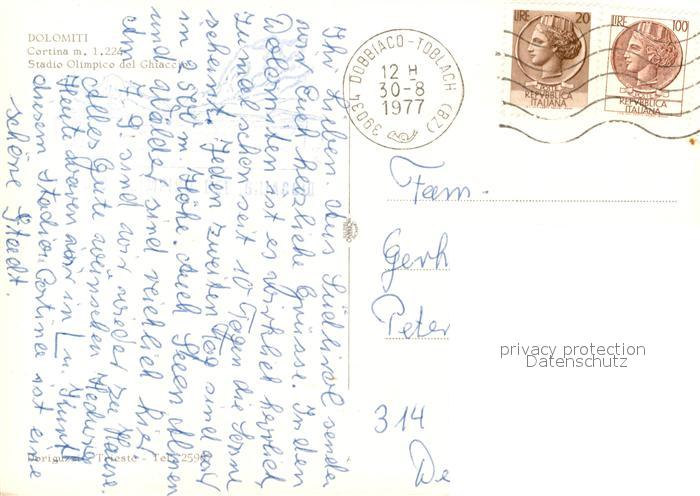 DOLOMITI
Cortina m. 1.224
Stadio Olimpico del Ghiacc
Ihr Lieben. Aus Südtirol senden
wir Euch herzliche Grüsse. In den
Dolomiten ist es wirklich herrlich,
zumal schon seit 10 Tagen die Sonne
scheint. Jeden zweiten Tag sind wir
in 2500 m. Höhe. Auch Seen Almen
und Wälder sind reichlich hier
Am 7.9. sind wir wieder zu Hause.
Alles Gute wünschen
Heute waren wir in
diesem Stadion Cortina ist eine
schöne Stadt.
Trieste - Tel.
39034 DOBBIACO-TOBLACH (BZ)
12 H
30-8
1977
LIRE 20
POSTE
REPVBBLICA
ITALIANA
LIRE 100
REPVBBLICA
ITALIANA
Fam.
Gerh
Peter
314
De
privacy protection
Datenschutz